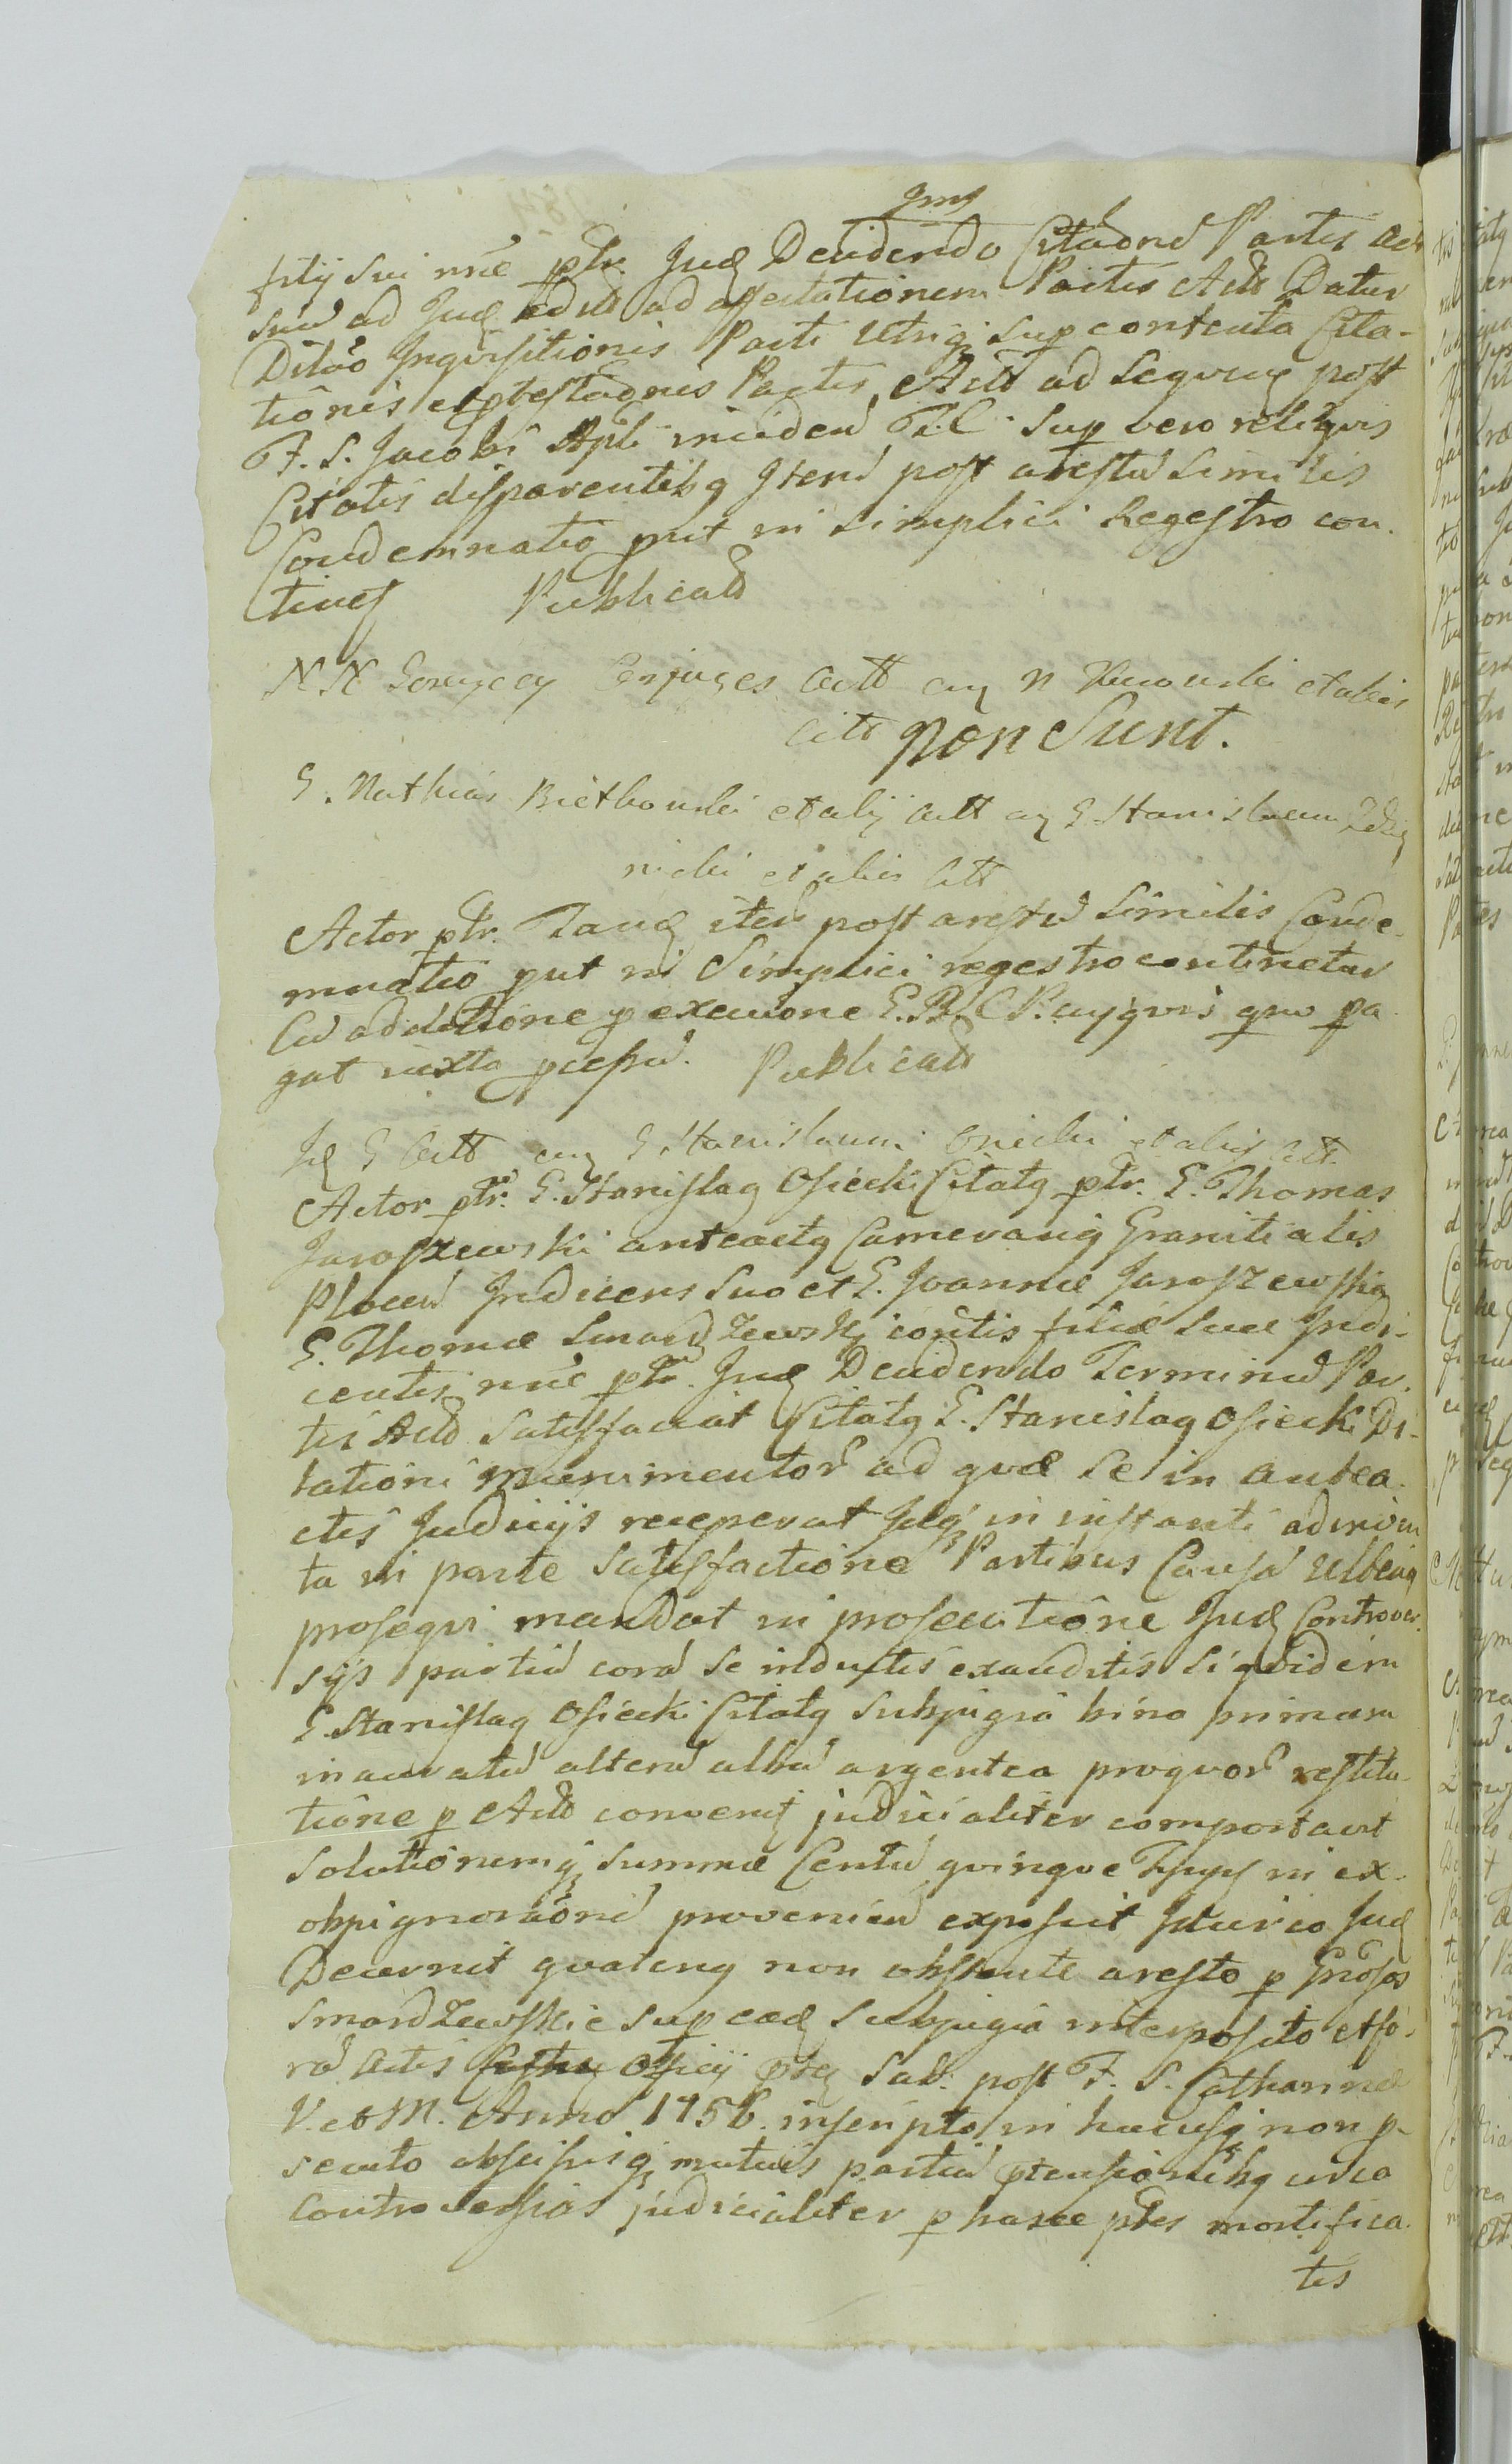 Jms
filij sui nne ptr. Jud Decidendo Citaōne Partis Act
sua ad Jud edita ad affectationem Partis Acto Datur
Dilāo Inqvisitionis Parti Utriq sup contenta Cita-
tionis et ptestaōnis Partis Acto ad Seqven post
F. S. Jacobi Apli inciden T.C. Sup vero reliqvis
Citatis disparentibq Iten post arestu Similis
Condemnatio put in Simplici Regestro con-
tinet Publicatt
N N Conjuges Actt cum N et alios
Citt non Sunt.
G. Mathias Bietkowski et alij Actt cum G. Stanislaum
nicki et alios Citt
Actor ptr. Tand iten post arestu Similis Conde-
mnatio put in Simplici regestro continetur
Cu additione p execuione qvo pa
gat iuxta Publicatt
Id G Actt cum G. Stanislaum et alios Citt
Actor ptr. G. Stanislaq Osiecki Citatq ptr. G. Thomas
Jaroszewski anteactq Camerariq Granitialis
Plocen Judicens Suo et G. Joannæ Jaroszewskiey
G. Thomæ Smardzewski contis filiæ suæ Judi-
centis nne ptr. Jud Decidendo Terminu Par-
tis Acto Satisfaciat Citatq G. Stanislaq Osiecki Di-
lationi Munimentor ad qvæ Se in antea-
ctis Judicijs receperat Idq in instanti adinven
ta in parte Satisfactione Partibus Causa Ulteriq
proseqvi mandat in prosecutione Jud Controver-
sijs partiu cora Se inductis exauditis Siqvidem
G. Stanislaq Osiecki Citatq Subpigia bina primum
inauratu alteru albu argentea proqvor restitu-
tione p Acto convent judicialiter comportavit
Solutionemq Summæ Centu qvinqve in ex-
obpignoraōne provenien exposuit Ideirco Jud
Decernit qvatenq non obstante aresto p Gnosos
Smardzewskie sup eæd Subpigia interposito et fo-
ra Actis Officij Sab. post F. S. Catharinæ
V. et M. Anno 1756. inscripto in hucusq non p-
secuto abscisisq mutuis partiu ptensionibq circa
Controversias judicialiter p hasce ptes mortifica-
tis